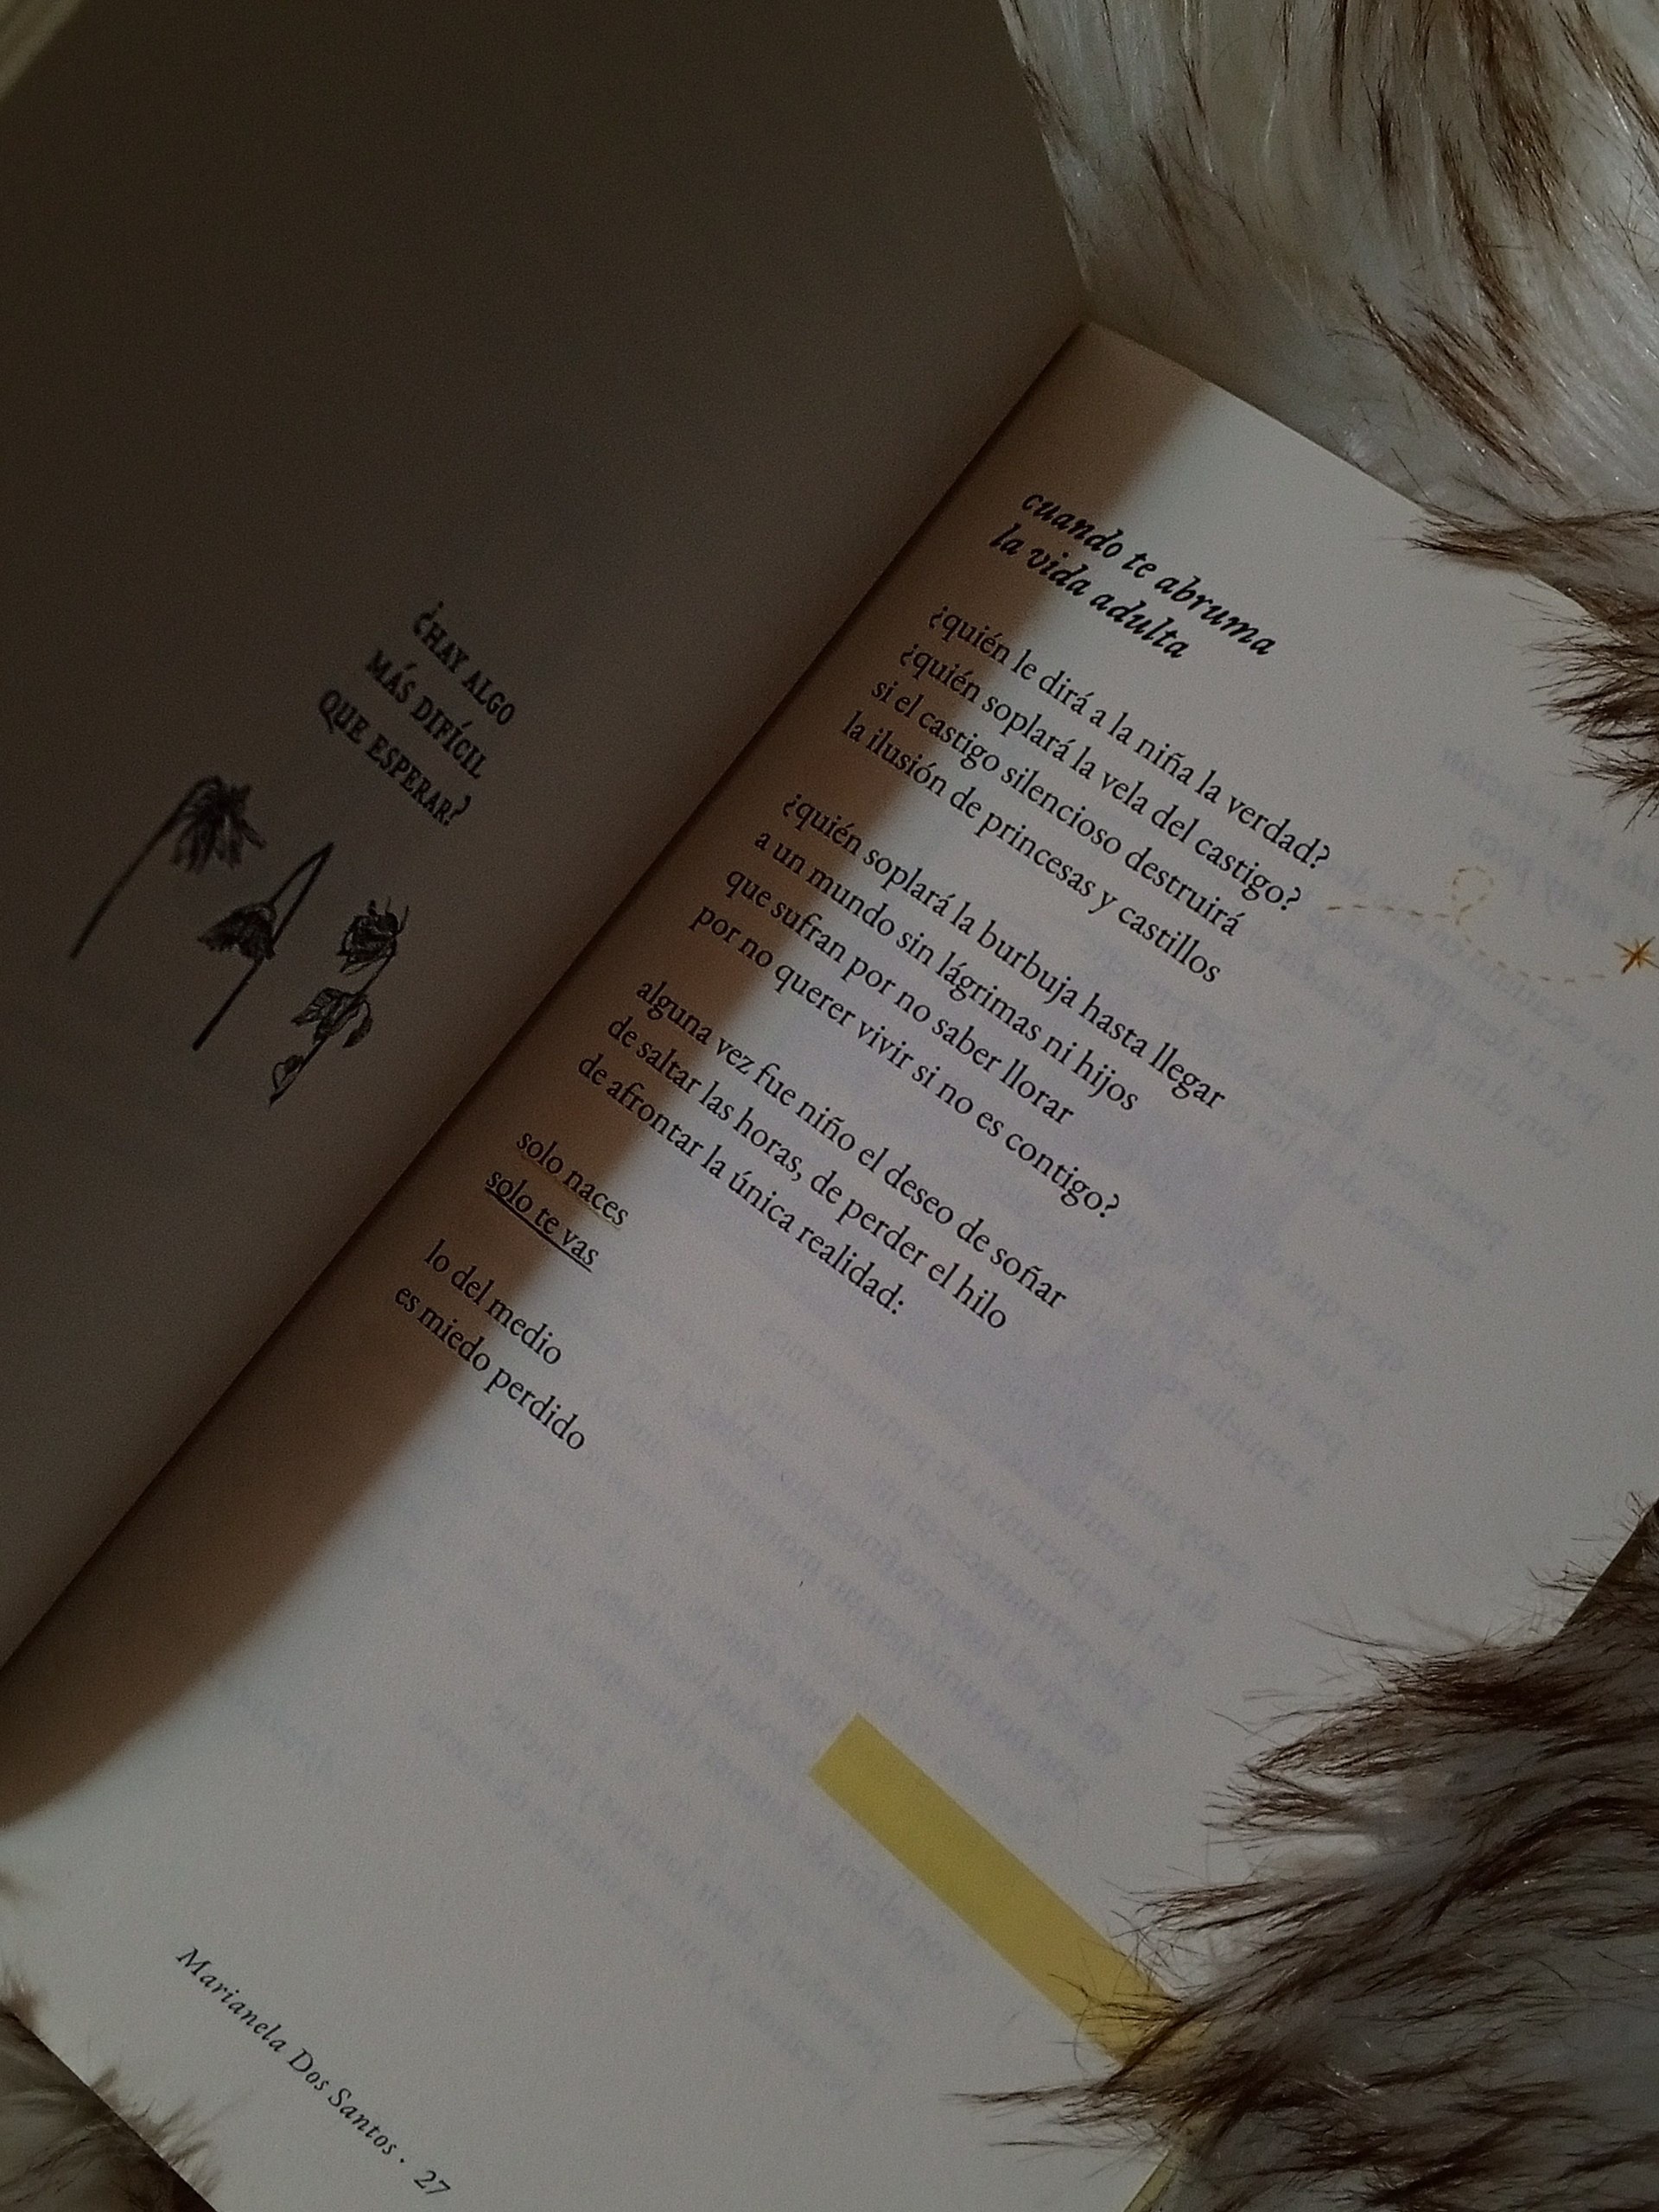 ¿HAY ALGO
MÁS DIFÍCIL
QUE ESPERAR?
cuando te abruma
la vida adulta
¿quién le dirá a la niña la verdad?
¿quién soplará la vela del castigo?
si el castigo silencioso destruirá
la ilusión de princesas y castillos
¿quién soplará la burbuja hasta llegar
a un mundo sin lágrimas ni hijos
que sufran por no saber llorar
por no querer vivir si no es contigo?
alguna vez fue niño el deseo de soñar
de saltar las horas, de perder el hilo
de afrontar la única realidad:
solo naces
solo te vas
lo del medio
es miedo perdido
Marianela Dos Santos · 27